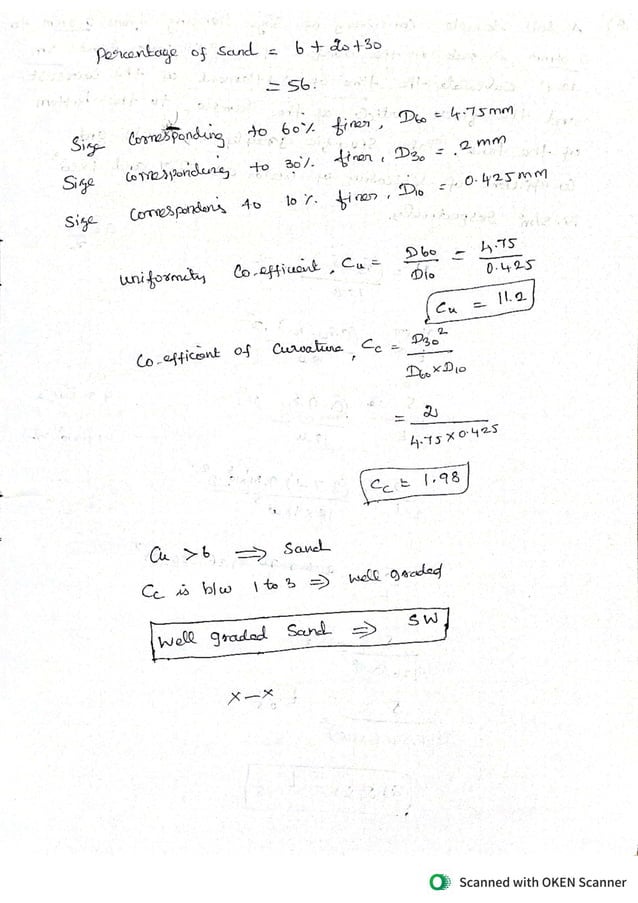 Percentage of Sand = 6 + 20 + 30
= 56.
Size Corresponding to 60% finer, D60 = 4.75mm
Size corresponding to 30% finer, D30 = .2mm
Size Correspondenis to 10% finer, D10 = 0.425mm
uniformity Co-efficient, Cu = D60/D10 = 4.75/0.425
Cu = 11.2
Co-efficient of Curvature, Cc = D30²/D60×D10
= 2/4.75×0.425
Cc = 1.98
Cu >6 ⇒ Sand
Cc is b/w 1 to 3 ⇒ well graded
Well graded Sand ⇒ SW
x-x
Scanned with OKEN Scanner